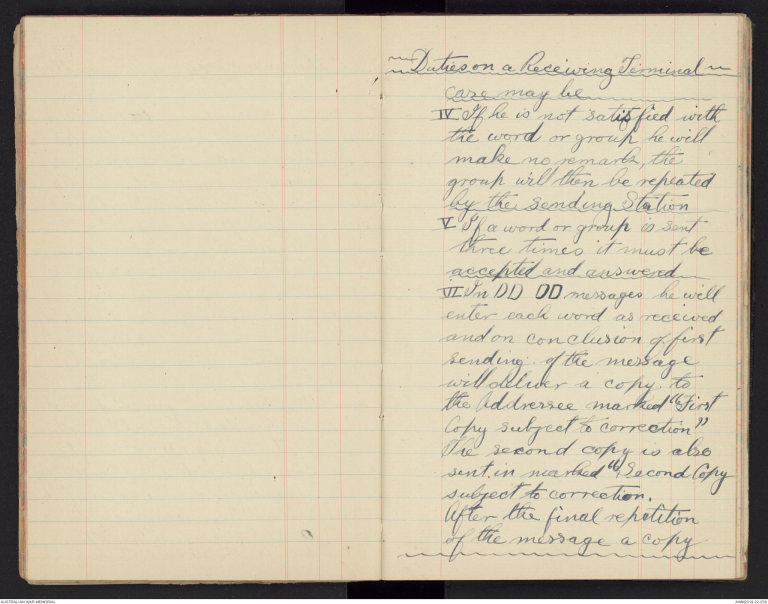 Duties on a Receiving Terminal
case may be
IV If he is not satisfied with
the word or group he will
make no remark, the
group will then be repeated
by the sending Station
V If a word or group is sent
three times it must be
accepted and answered
VI In DD DD messages he will
enter each word as received
and on conclusion of first
sending of the message
will deliver a copy to
the Addressee marked "First
Copy subject to correction"
The second copy is also
sent in marked "Second Copy
subject to correction.
After the final repetition
of the message a copy
AUSTRALIAN WAR MEMORIAL